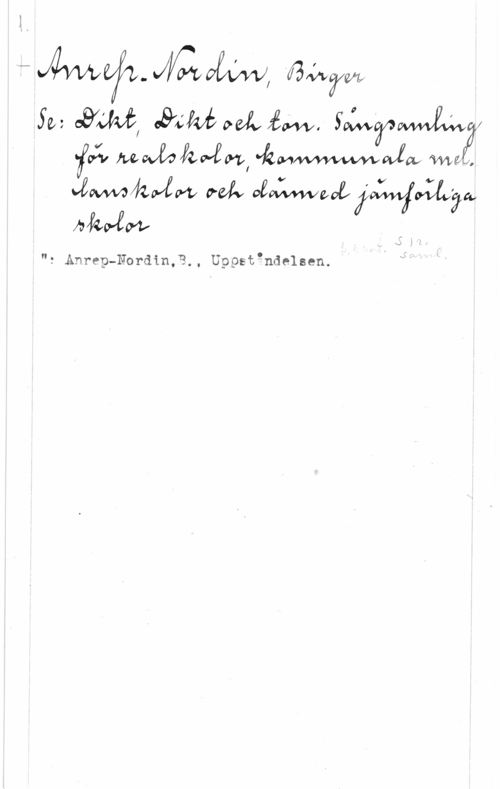 1.
+
Anrep-Nordin, Birger
Se: Dikt, Dikt och ton. Sångsamling
för realskolor, kommunala mel-
lanskolor och därmed jämförliga
skolor
": Anrep-Nordin,B., Uppståndelsen.